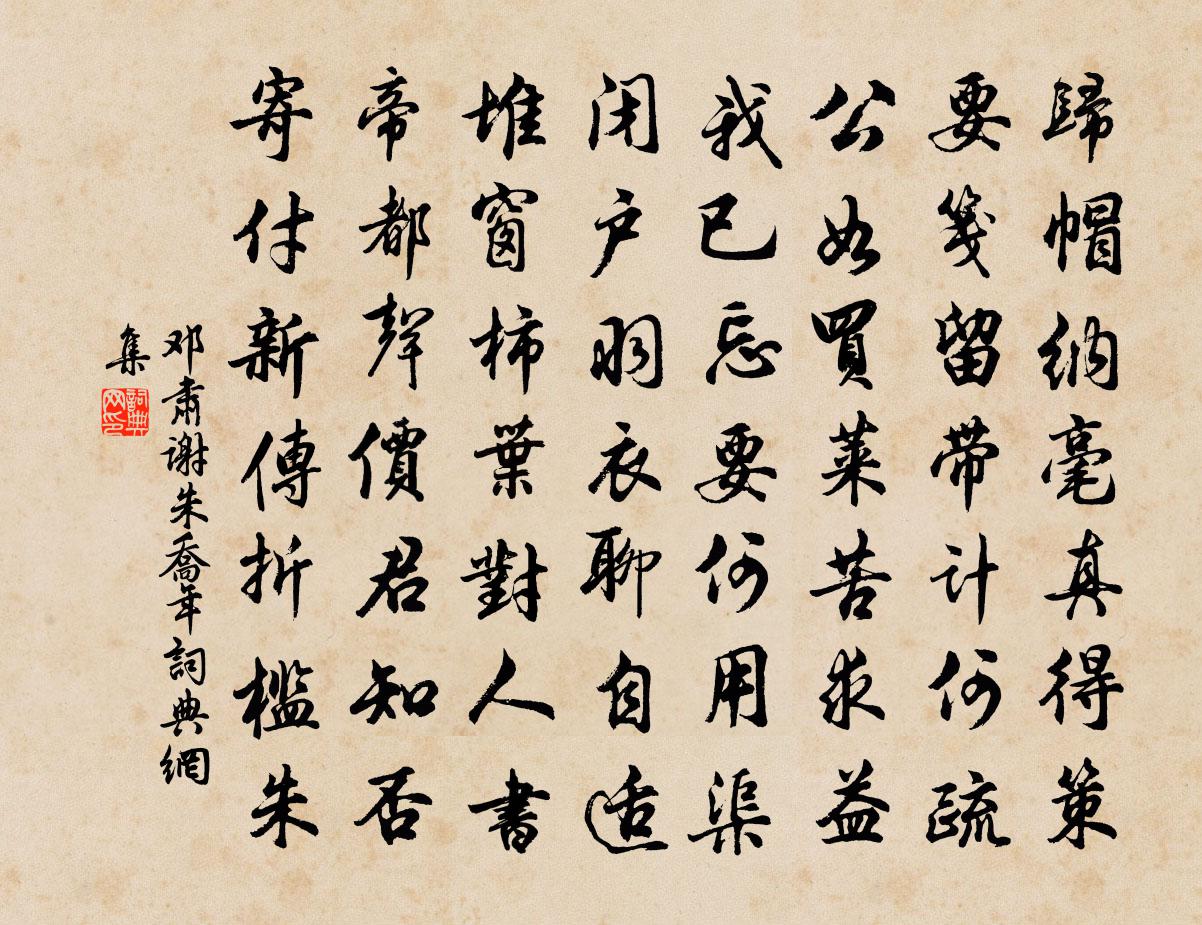 歸帽納毫真得策
要箋留帶計何疏
公如買菜苦求益
我已忘要何用渠
閉戶羽衣聊自適
堆窗柿葉對人書
帝都聲價君知否
寄付新傳折檻朱
邓肅谢朱喬年詞典網
集
詞典网印